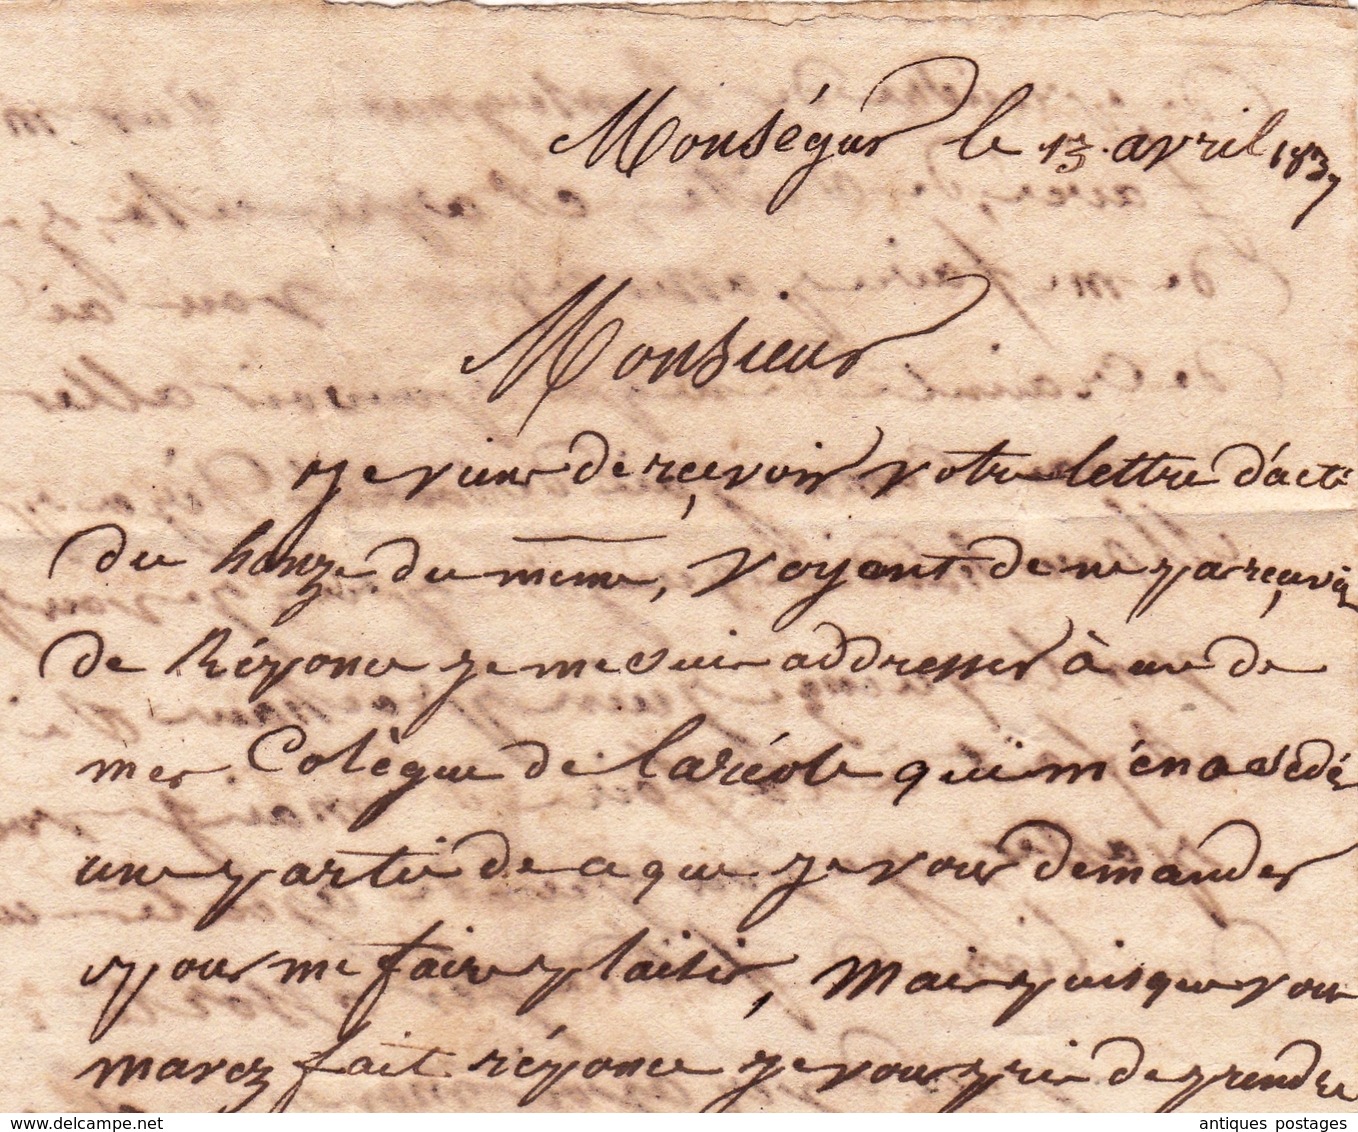 Monségur le 13 avril 1837
Monsieur
Je viens de reçevoir votre lettre d'acte
du honze du même, voyent de ne pas reçevoir
de Réponce je me suis addresser à un de
mes Colègue de Laréole quï m'en a cédé
une partie de ce que je vous demander
pour me faire plaisir, Mais puisque vous
mavez fait réponce je vous prie de prendre
antiques postages
www.delcampe.net